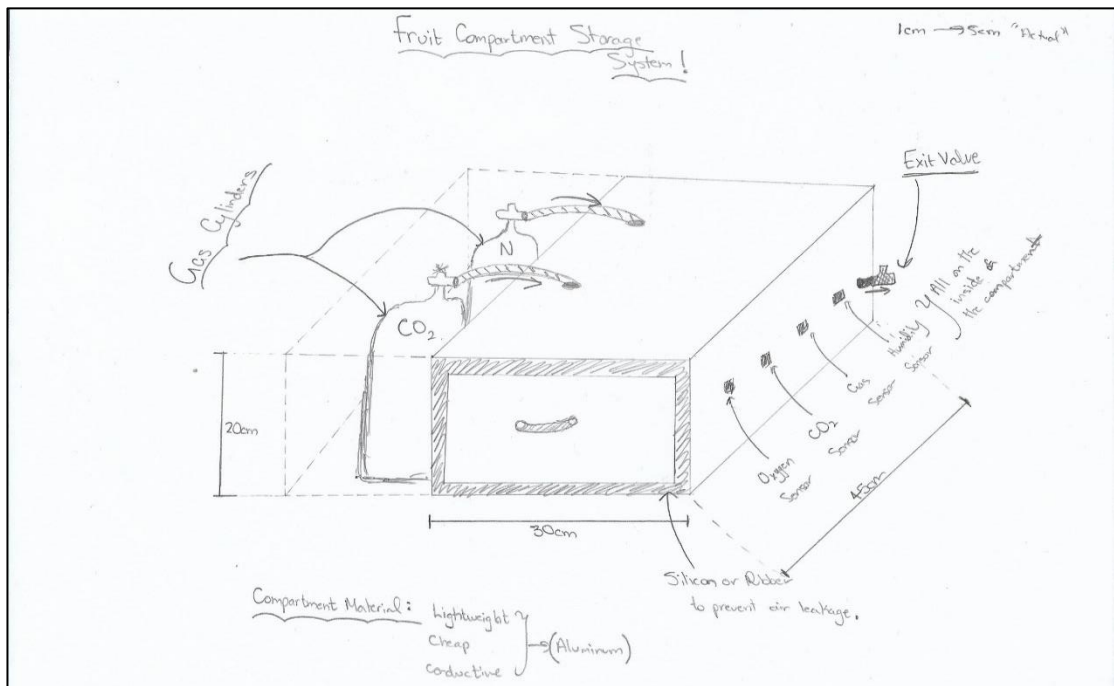 Fruit Compartment Storage
System!
1cm → 5cm "Actual"
Gas Cylinders
Exit Valve
N
CO₂
All on the
inside of
the compartment
Humidity
Sensor
Gas
Sensor
CO₂
Sensor
Oxygen
Sensor
20cm
30cm
45cm
Silicon or Rubber
to prevent air leakage.
Compartment Material:
Lightweight
Cheap
Conductive
→ (Aluminum)